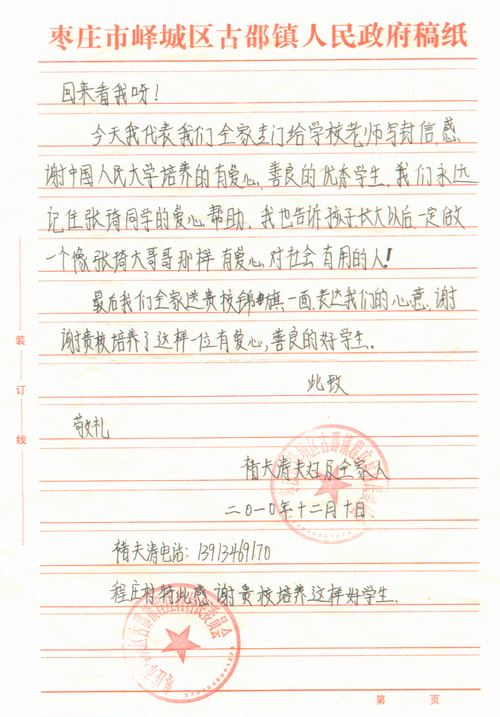 枣庄市峄城区古邵镇人民政府稿纸
回来看我呀!
今天我代表我们全家专门给学校老师写封信,感
谢中国人民大学培养的有爱心,善良的优秀学生,我们永远
记住张琦同学的爱心帮助、我也告诉孩子长大以后一定做
一个像张琦大哥哥那样 有爱心对社会有用的人!
最后我们全家送贵校锦旗一面,表达我们的心意,谢
谢贵校培养了这样一位有爱心,善良的好学生.
此致
敬礼
褚夫涛夫妇及全家人
二〇一〇年十二月十日
褚夫涛电话:13913469170
程庄村特此感谢贵校培养这样好学生.
装
订
线
第 页